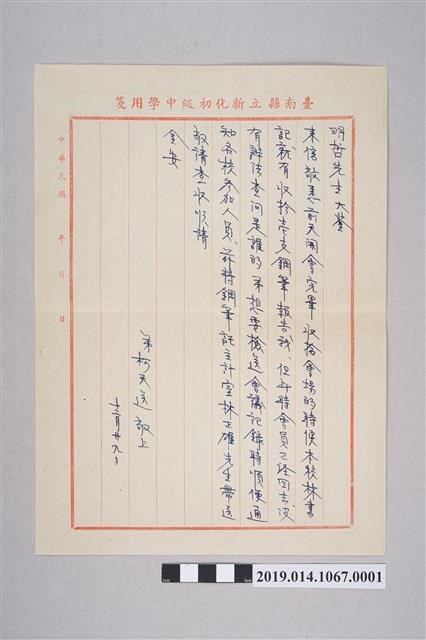 臺南縣立新化初級中學用箋
明哲先生大鑒
來信敬悉前天開會完畢收拾會場的時候本校林書
記就有收拾壱支鋼筆報告我、但斗時會員已經回去沒
有辦法查问是誰的弟想要檢送會議記錄時順便通
知各校參加人員、茲將鋼筆託主計室林正雄先生帶送
敬請查收順請
金安
弟柯天送敬上
十二月廿九日
中華民國 年 月 日
2019.014.1067.0001